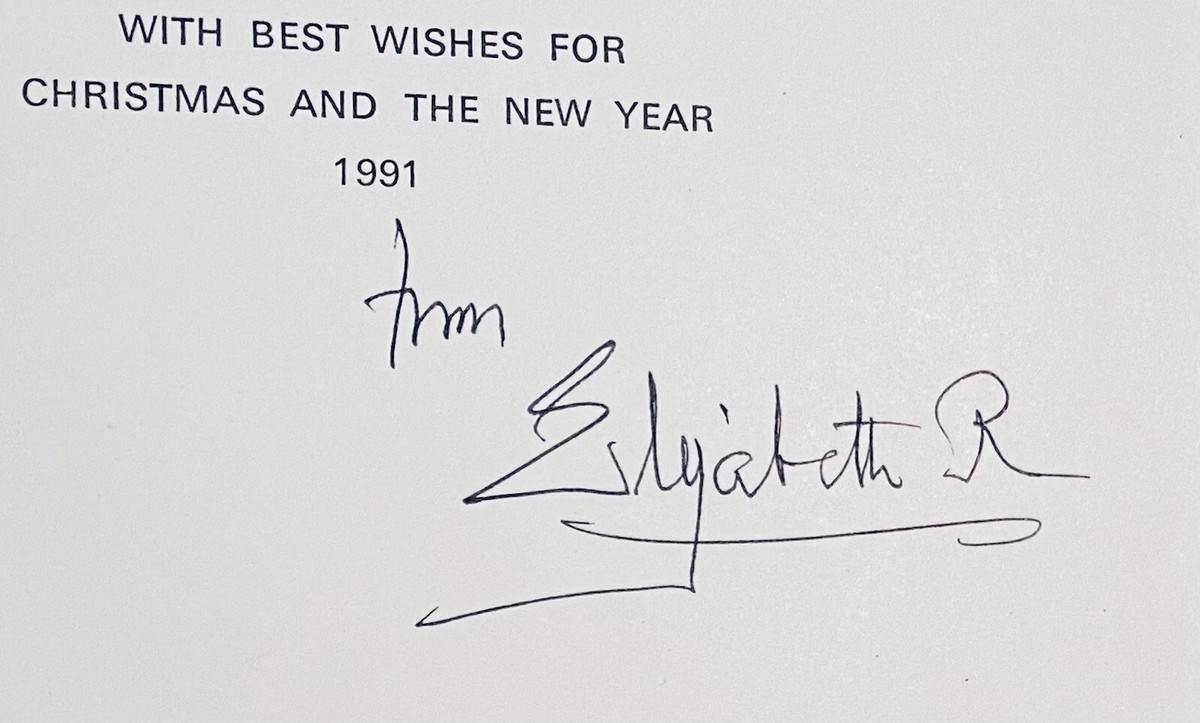 WITH BEST WISHES FOR
CHRISTMAS AND THE NEW YEAR
1991
from
Elizabeth R